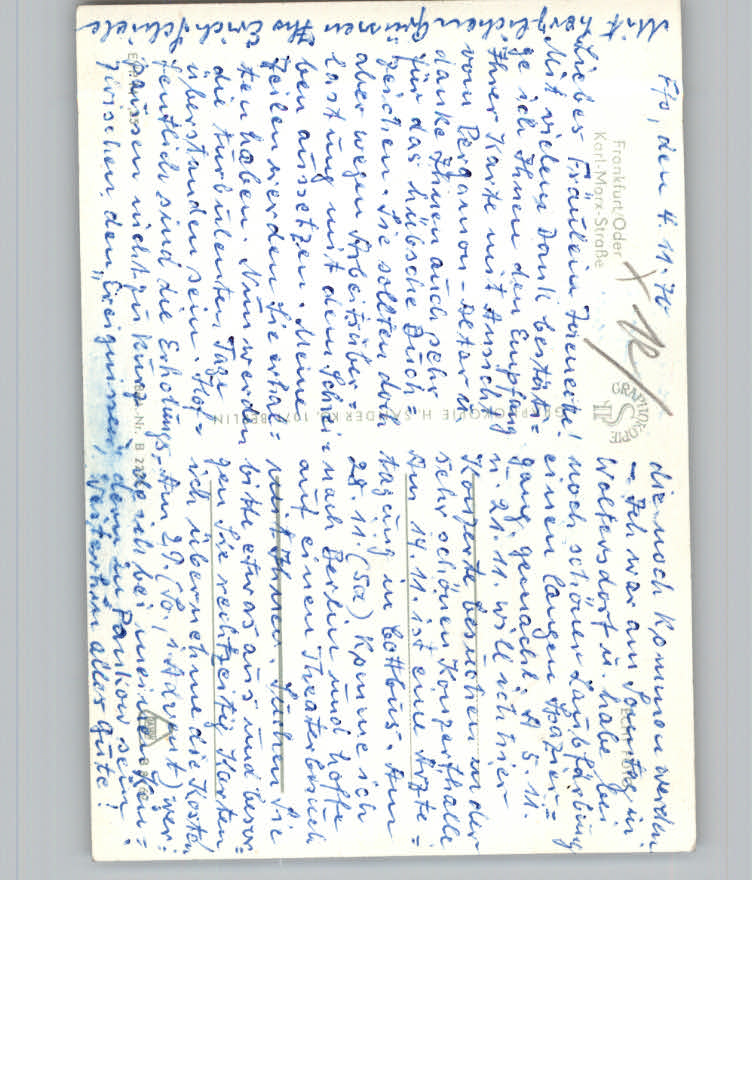 F/O, den 4.11.70
Frankfurt/Oder
Karl-Marx-Straße
Liebes Fräulein
Mit vielem Dank bestäti=
ge ich Ihnen den Empfang
Ihrer Karte mit Ansicht
vom Pergamon-Altar u.
danke Ihnen auch sehr
für das hübsche Buch=
zeichen. Sie sollten doch
aber wegen Arbeitsüber=
lastung mit dem Schrei=
ben aussetzen. Meine
Zeilen werden Sie erhal=
ten haben. Nun werden
die turbulenten Tage
überstanden sein. Hof=
fentlich sind die Erholungs=
pausen nicht zu kurz
zwischen den „Ereignissen",
die noch kommen werden.
– Ich war am Sonntag in
Woltersdorf u. habe bei
noch schöner Laubfärbung
einen langen Spazier=
gang gemacht. A 5.11.
u. 21.11. will ich hier
Konzerte besuchen in der
sehr schönen Konzerthalle
Am 14.11. ist eine Ärzte=
tagung in Cottbus. Am
28.11. (Sa) komme ich
nach Berlin und hoffe
auf einen Theaterbesuch
mit Ihnen. Suchen Sie
bitte etwas aus und besor=
gen Sie rechtzeitig Karten
ich übernehme die Kosten
Am 29. (So, 1. Advent) wer=
de ich bei
in Pankow sein.
Weiterhin alles Gute!
Mit herzlichen Grüssen Ihr Erich
GRAPHOKOPIE
ECHT FOTO
GRAPHOKOPIE H. SANDER KG, 1071 BERLIN